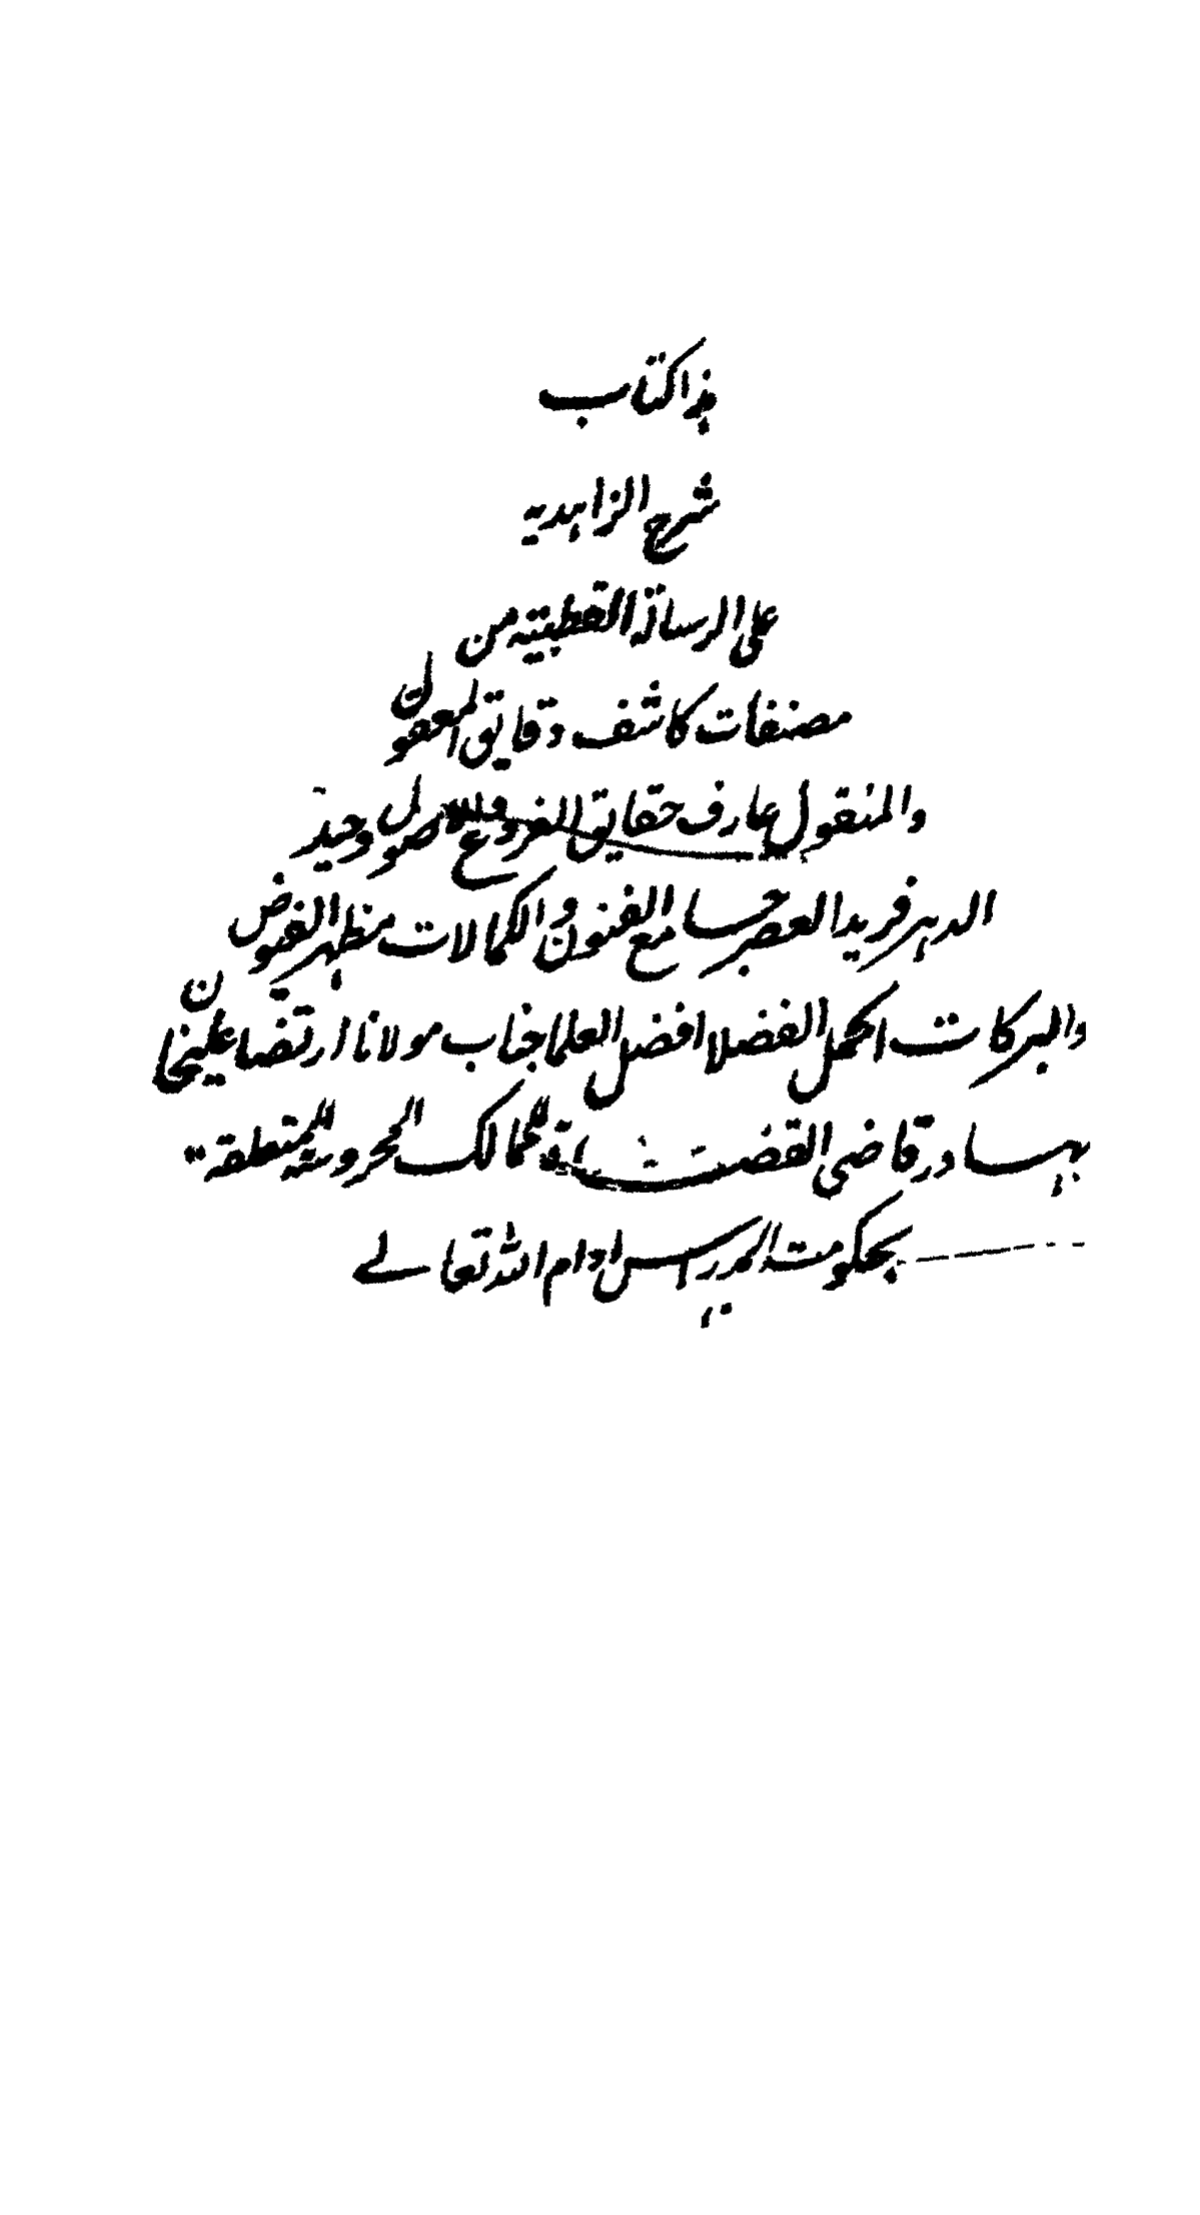 هذا كتاب
شرح الزاهدیه
علی الرسالة القطبیته من
مصنفات كاشف دقایق المعقول
والمنقول عارف حقایق الفروع والاصول وحید
الدهر فرید العصر جامع الفنون والكمالات مظهر الفیوض
والبركات اكمل الفضلا افضل العلما جناب مولانا ارتضا علیخان
بهادر قاضی القضاة للممالك المحروسة المتعلقة
بحكومت المدراس ادام الله تعالے